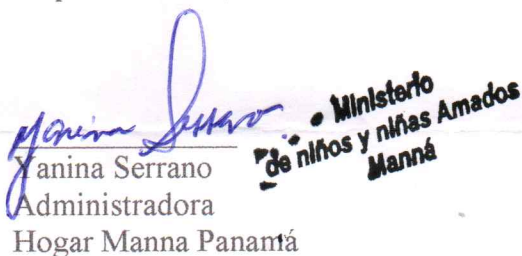 Yanina Serrano
Ministerio
de niños y niñas Amados
Manná
Yanina Serrano
Administradora
Hogar Manna Panamá